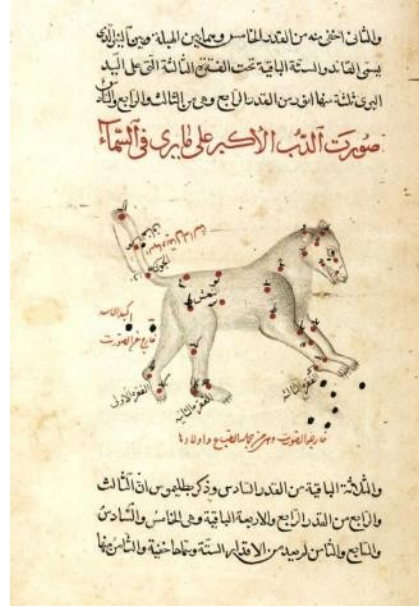 والثانى اخفى منه من القدر الخامس وهما بين المبلة وبين النير الذى
يسمى القائد والستة الباقية تحت القفزة الثالثة التى على اليد
اليسرى ثلثة منها انور من القدر الرابع وهى من الثالث والرابع والسادس
صورت الدب الأكبر على ما يرى فى السماء
الجون
النعش
كبد الاسد
خارج عن الصورت
القفزة الأولى
القفزة الثانيه
القفزة الثالثه
خارج الصورت وهى من الظباع واولادها
والثلاثة الباقية من القدر السادس وذكر بطلميوس ان الثالث
والرابع من القدر الرابع والاربعة الباقية وهى الخامس والسادس
والسابع والثامن لم يعد من الاقدار الستة وسماها خفية والثامن منها